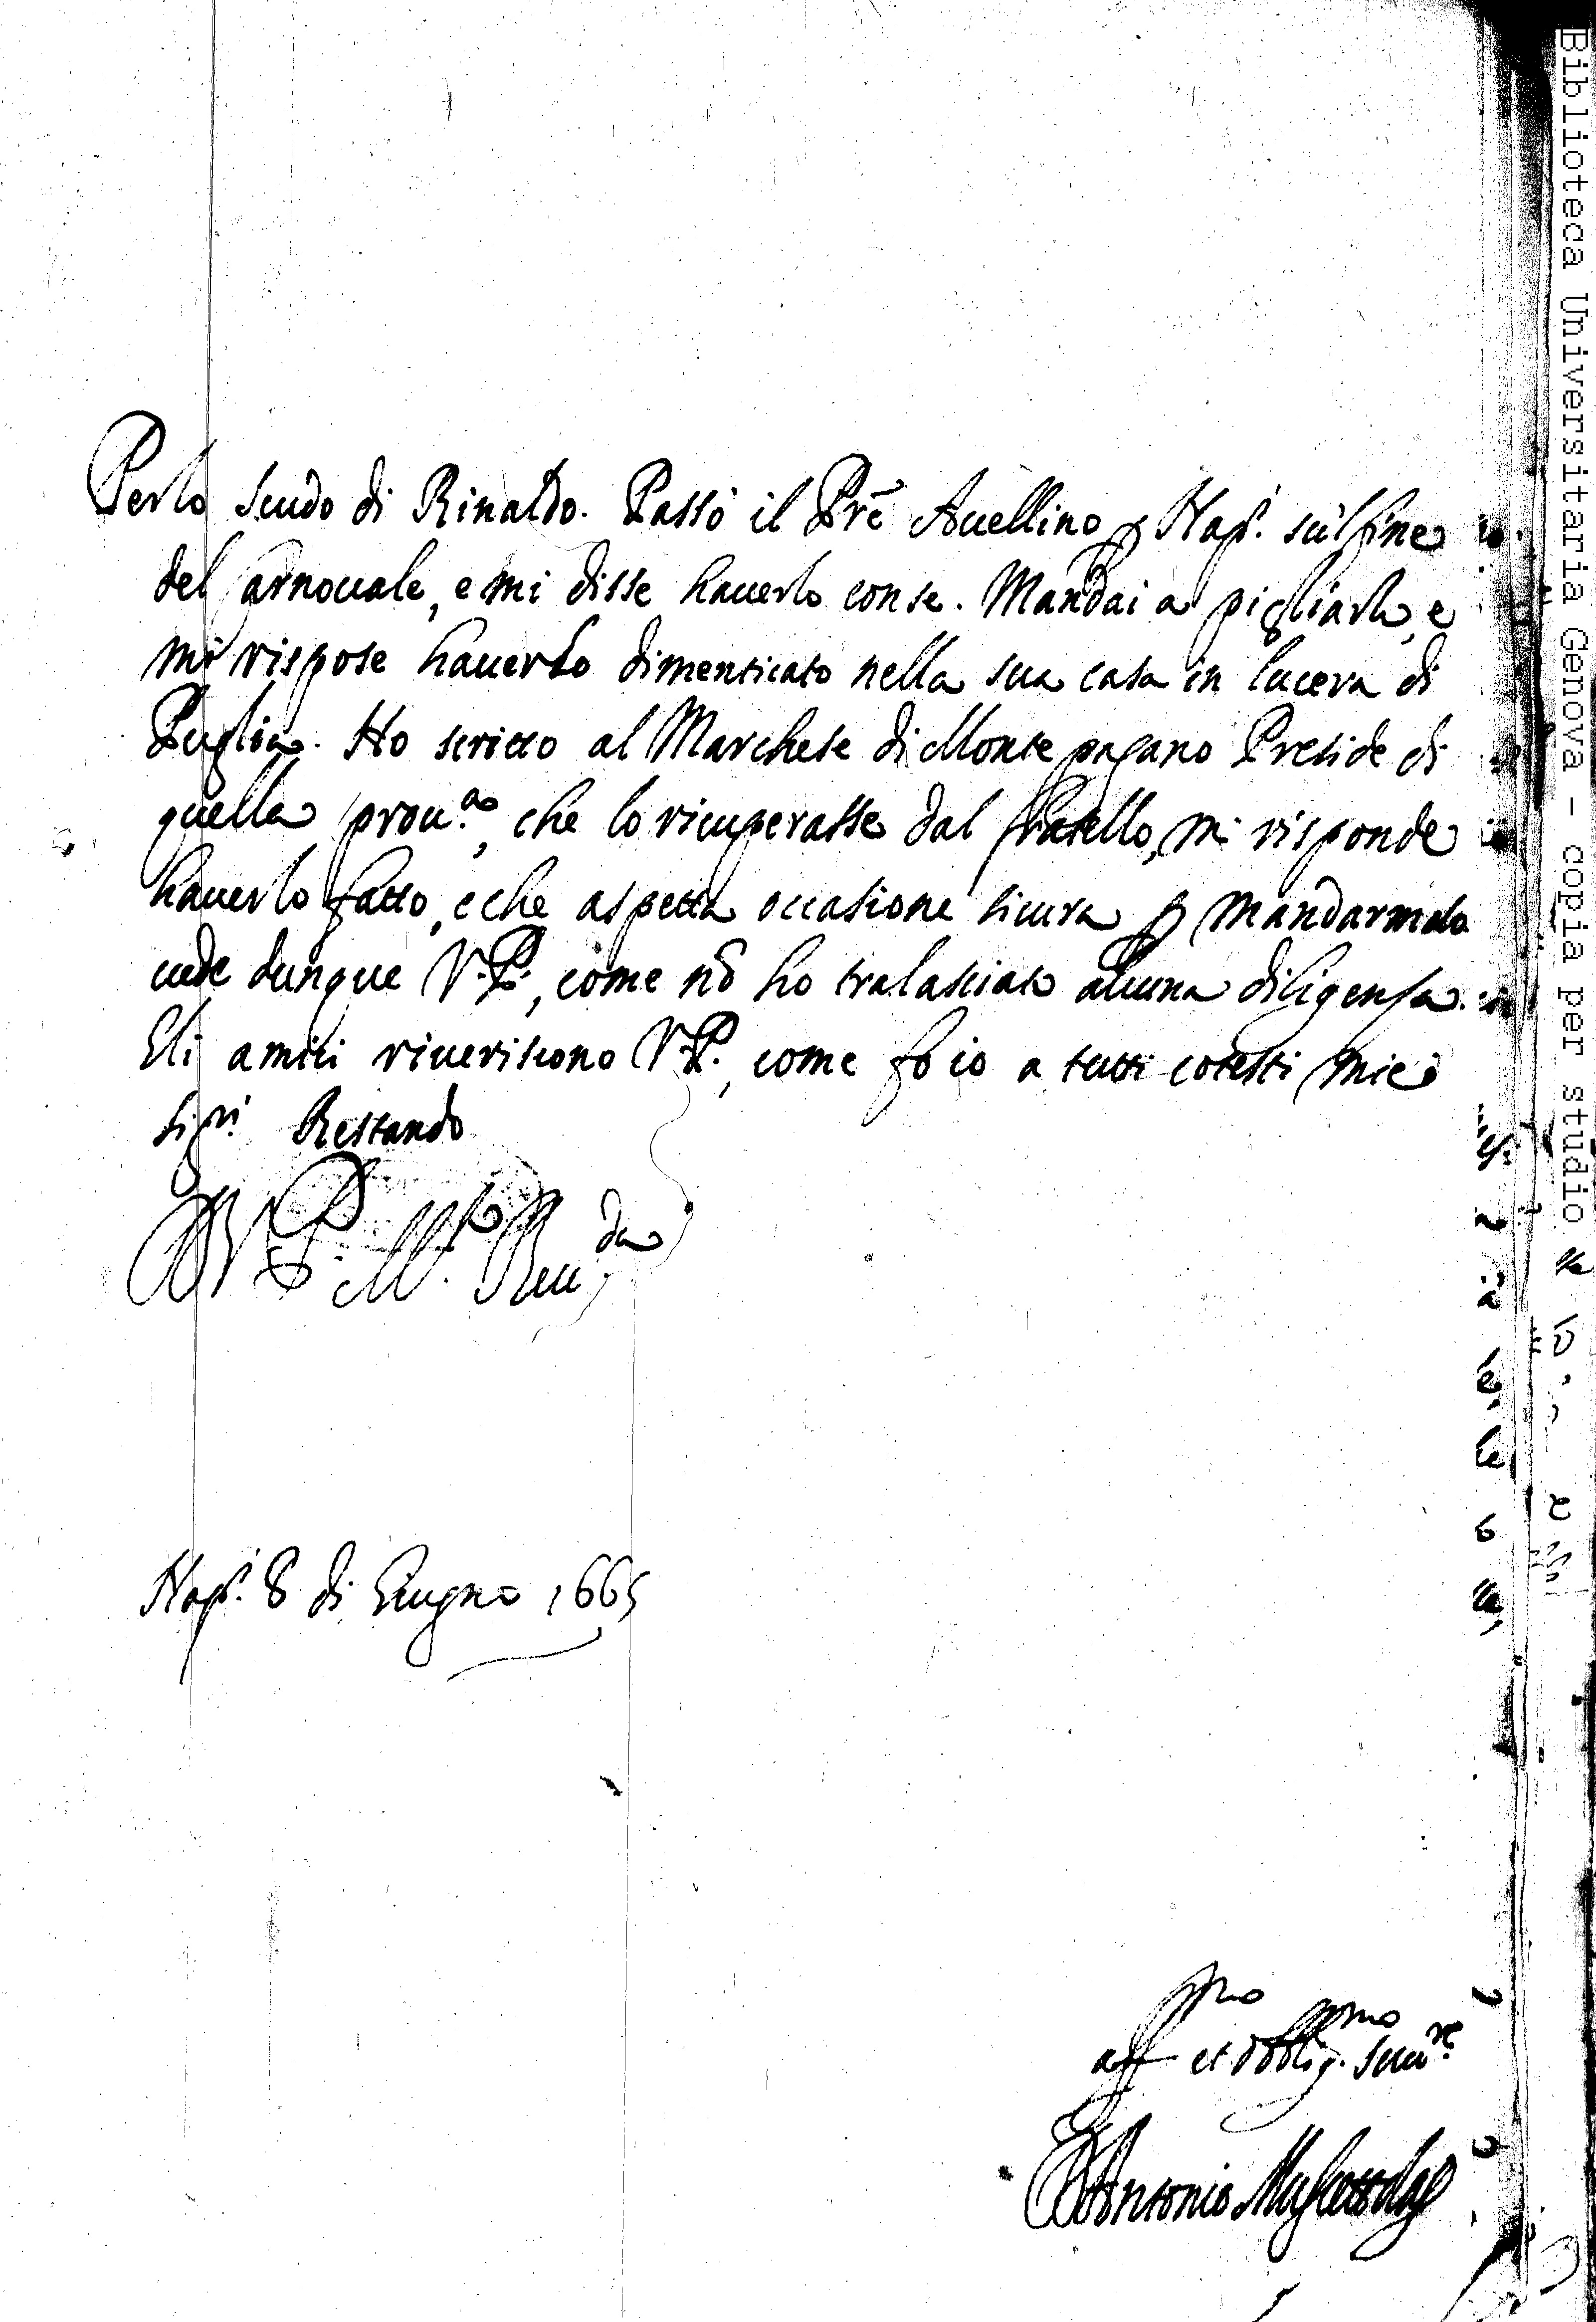 Per lo scudo di Rinaldo. Passò il Prē Auellino ꝑ Nap.i sul fine
del carnouale, e mi disse hauerlo con se. Mandai a pigliarlo, e
mi rispose hauerlo dimenticato nella sua casa in lucera di
Puglia. Ho scritto al Marchese di Monte pagano Preside di
quella prou.a, che lo ricuperasse dal fratello, mi risponde
hauerlo fatto, e che aspetta occasione sicura ꝑ mandarmelo
uede dunque V.P., come nō ho tralasciato alcuna diligenza.
Gli amici riueriscono V.P., come fo io a tutti cotesti miei
sig.ri Restando
D V.P. M.to Reu.da
Nap.i 8 di Giugno 1665
aff.mo et obblig.mo seru.re
D Antonio Muscettola
Biblioteca Universitaria Genova - copia per studio